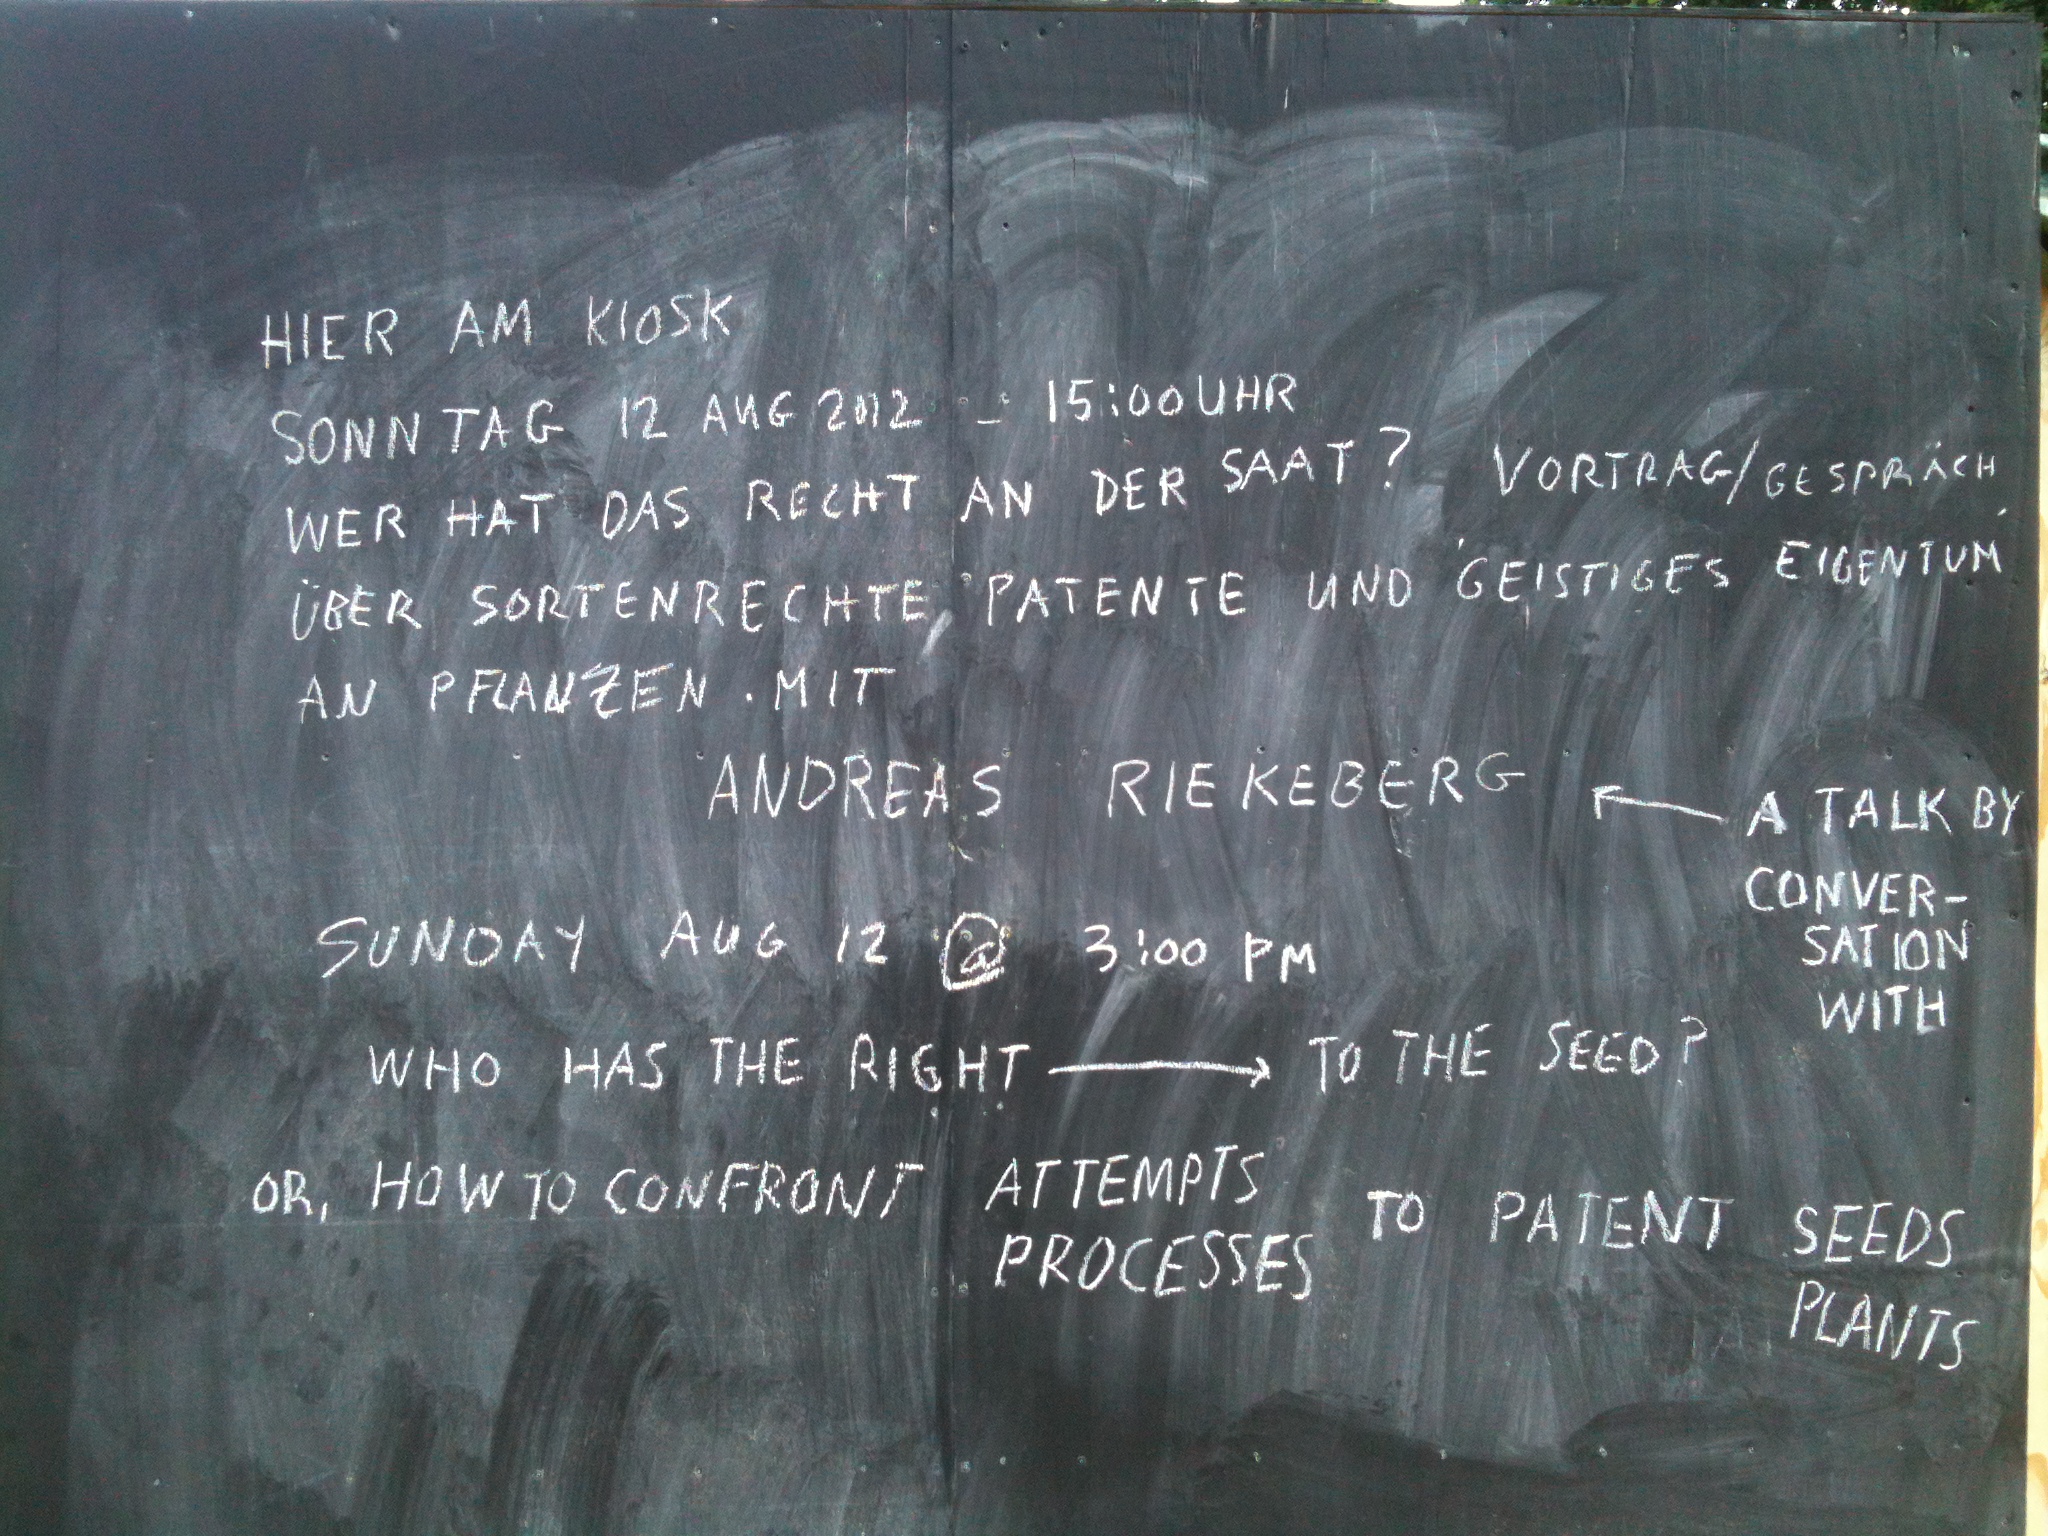 HIER AM KIOSK
SONNTAG 12 AUG 2012 – 15:00 UHR
WER HAT DAS RECHT AN DER SAAT? VORTRAG/GESPRÄCH
ÜBER SORTENRECHTE, PATENTE UND GEISTIGES EIGENTUM
AN PFLANZEN. MIT
ANDREAS RIEKEBERG ← A TALK BY
CONVER-
SATION
WITH
SUNDAY AUG 12 @ 3:00 PM
WHO HAS THE RIGHT → TO THE SEED?
OR, HOW TO CONFRONT ATTEMPTS TO PATENT SEEDS
PROCESSES PLANTS